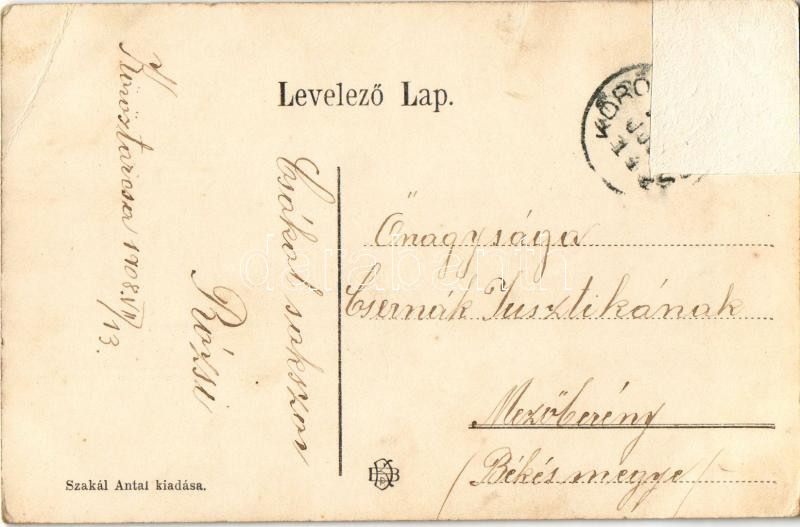 Levelező Lap.
KÖRÖ
Őnagysága
Csernák Jusztikának
Mezőberény
(Békés megye)
Csókol sokszor
Rózsi
Köröstarcsa 1908. VII/13.
Szakál Antal kiadása.
darabanth